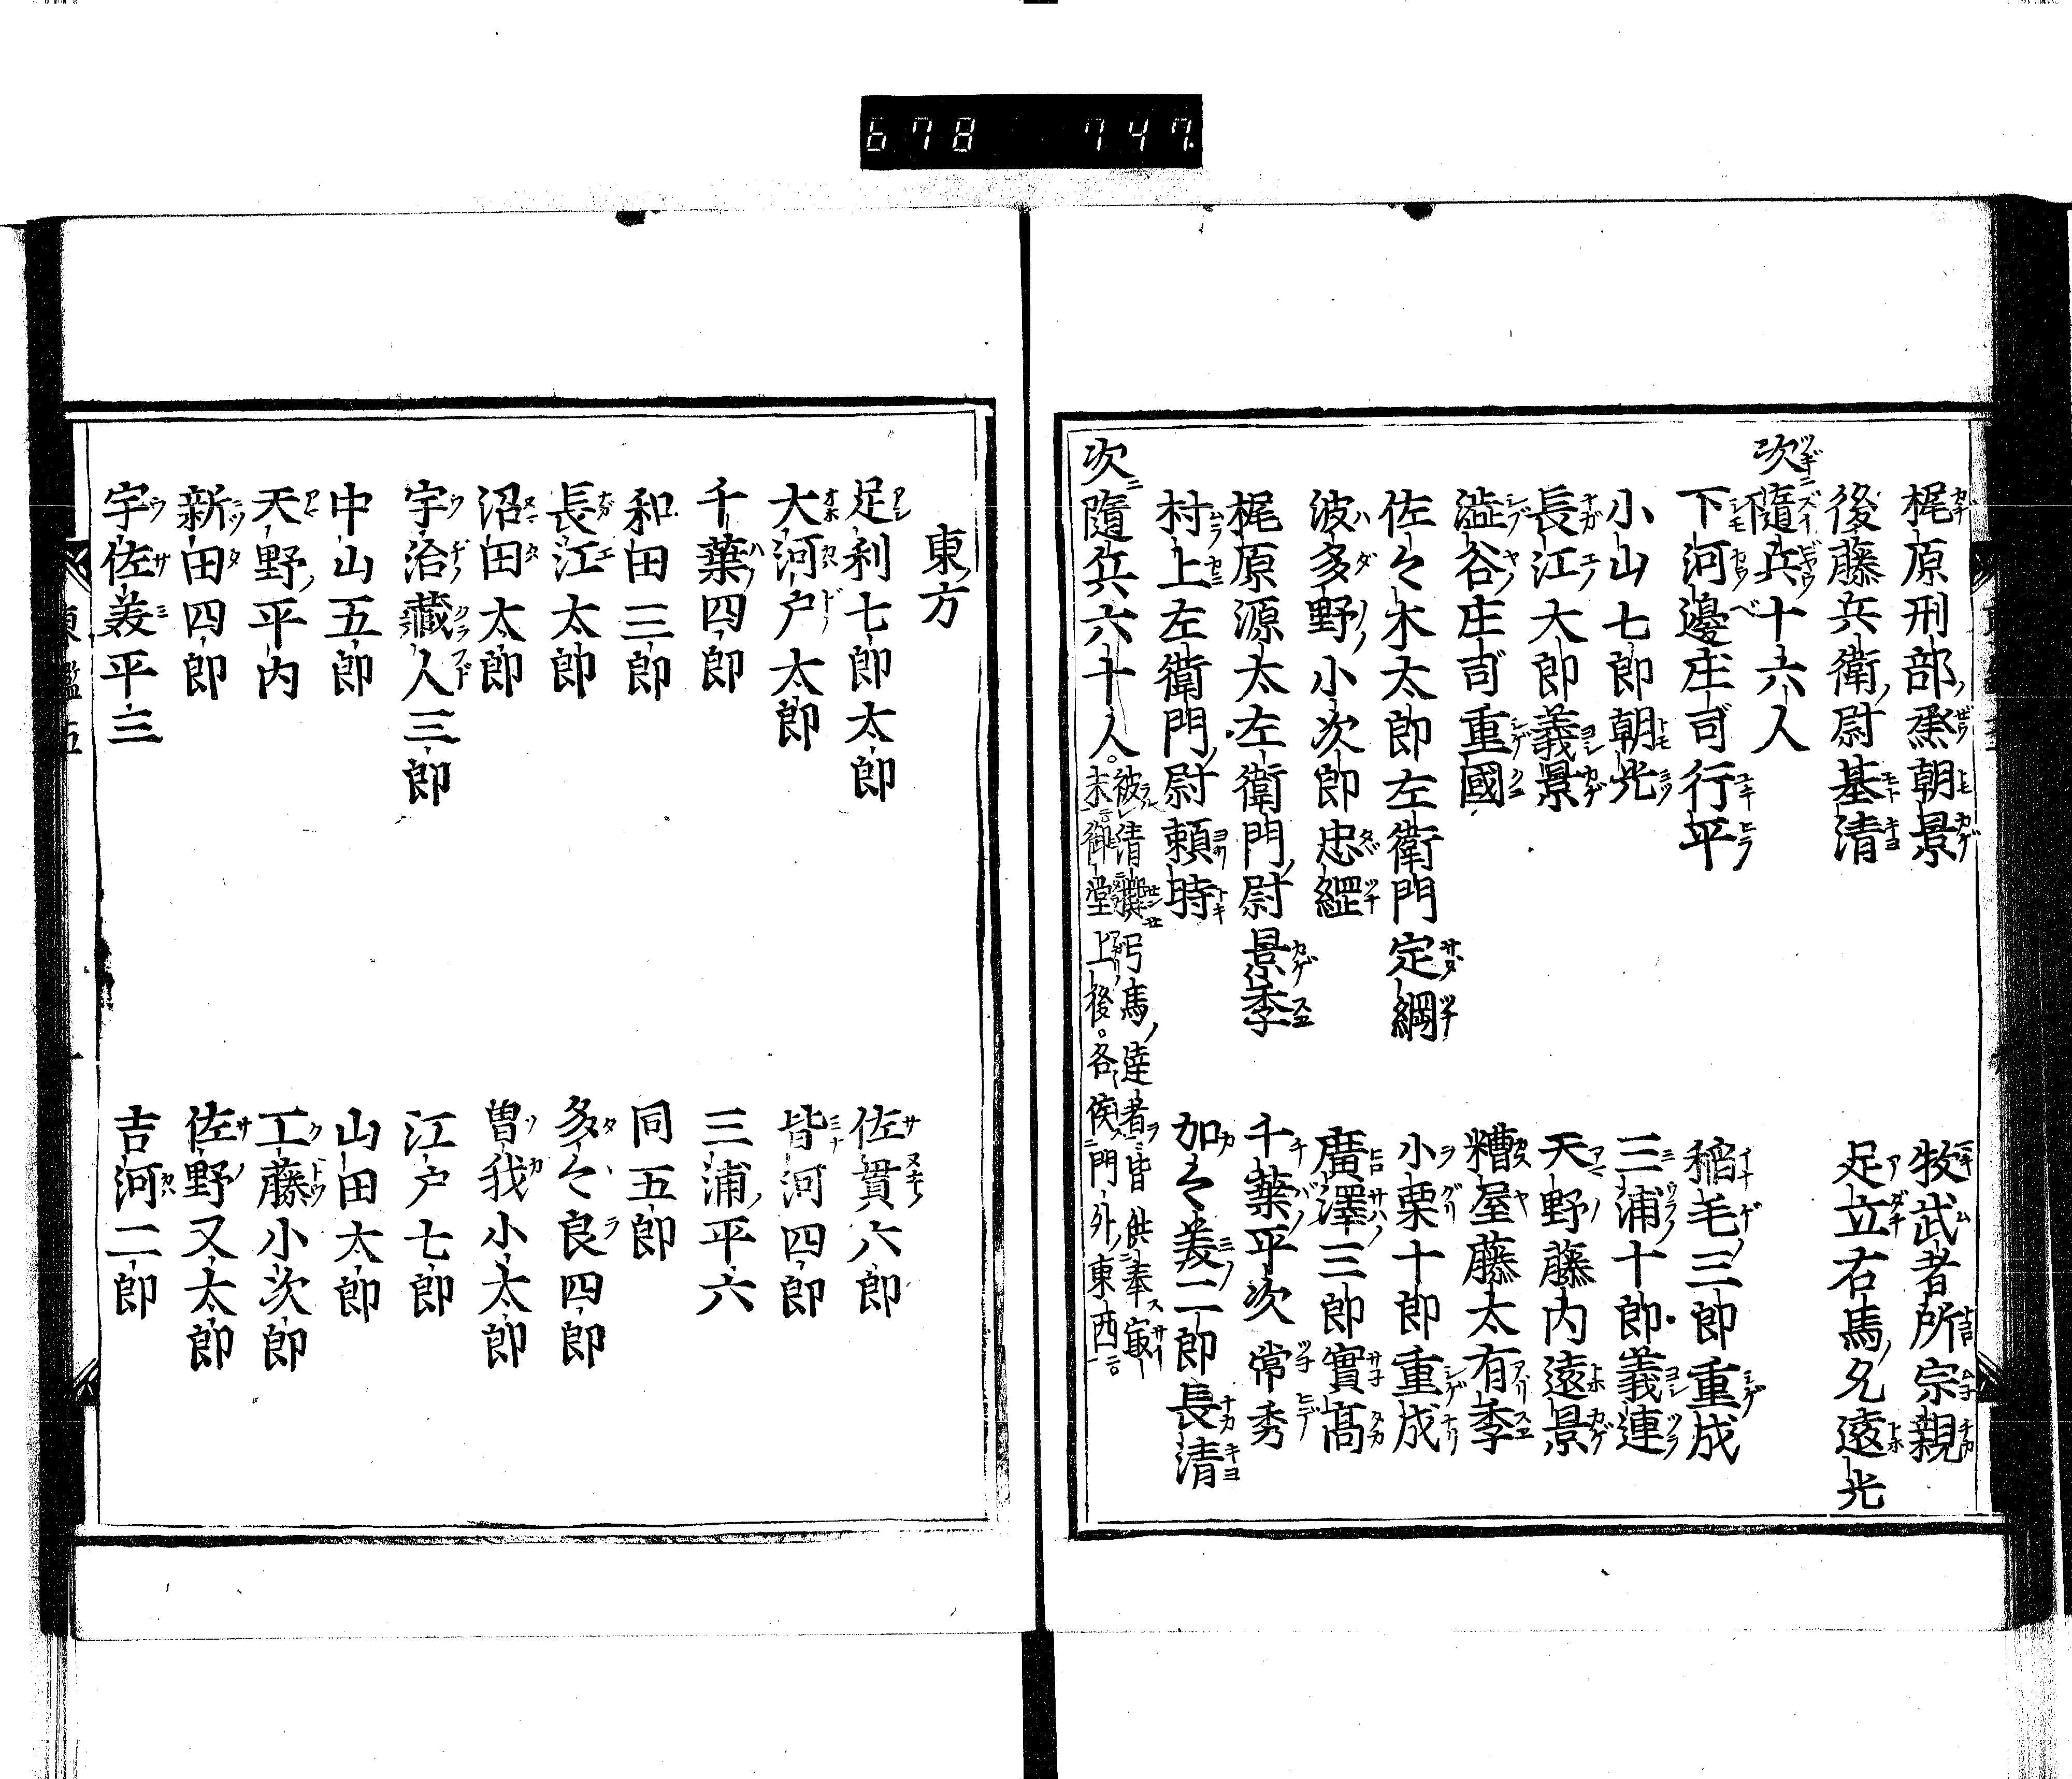 678 747.
梶原刑部烝朝景 牧武者所宗親
後藤兵衛尉基清 足立右馬允遠光
次隨兵十六人
下河邊庄司行平 稲毛三郎重成
小山七郎朝光 三浦十郎義連
長江太郎義景 天野藤内遠景
澁谷庄司重國 糟屋藤太有季
佐々木太郎左衛門定綱 小栗十郎重成
波多野小次郎忠綱 廣澤三郎實髙
梶原源太左衛門尉景季 千葉平次常秀
村上左衛門尉頼時 加々美二郎長清
次隨兵六十人。被清撰弓馬達者皆供奉㝡
末御堂上後。各候門外東西。
東方
足利七郎太郎 佐貫六郎
大河戸太郎 皆河四郎
千葉四郎 三浦平六
和田三郎 同五郎
長江太郎 多々良四郎
沼田太郎 曽我小太郎
宇治藏人三郎 江戸七郎
中山五郎 山田太郎
天野平内 工藤小次郎
新田四郎 佐野又太郎
宇佐美平三 吉河二郎